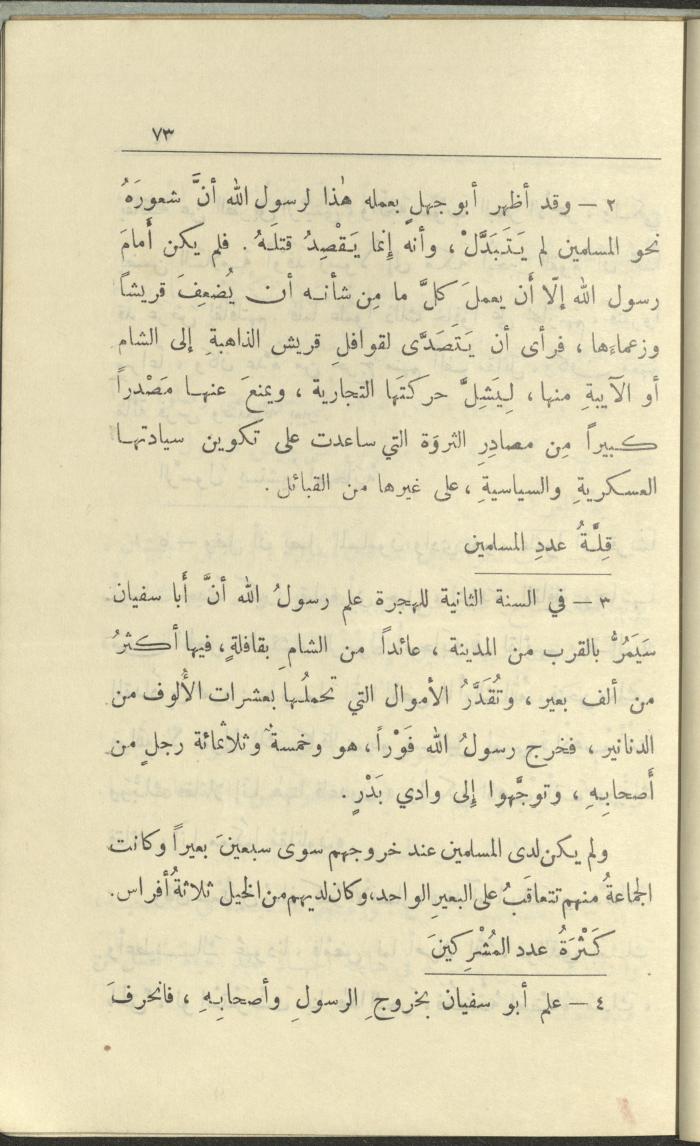 ٧٣
٢ — وقد أظهر أبو جهلٍ بعمله هٰذا لرسول الله أنَّ شعورَهُ
نحو المسلمين لم يَتَبَدَّلْ ، وأنه إِنما يَقْصِدُ قتلَهُ . فلم يكن أَمامَ
رسول الله إلّا أَن يعملَ كلَّ ما مِن شأنه أن يُضعِفَ قريشاً
وزعماءَها ، فرأى أن يَتَصَدَّى لقوافلِ قريش الذاهبةِ إلى الشام
أو الآيبةِ منها ، لِيَشِلَّ حركتَها التجارية ، ويمنعَ عنها مَصْدراً
كبيراً مِن مصادِرِ الثروَة التي ساعدت على تكوين سيادتها
العسكريةِ والسياسيةِ ، على غيرها من القبائل .
قِلَّةُ عددِ المسلمين
٣ — في السنة الثانية للهجرة علم رسولُ الله أنَّ أَبا سفيان
سَيَمُرُّ بالقرب من المدينة ، عائداً من الشامِ بقافلةٍ ، فيها أكثرُ
من ألف بعير ، وتُقَدَّرُ الأموال التي تحملُها بعشرات الأُلوف من
الدنانير ، فخرج رسولُ الله فَوْراً ، هو وخمسةٌ وثلاثمائة رجلٍ من
أَصحابِهِ ، وتوجَّهوا إلى وادي بَدْرٍ .
ولم يكن لدى المسلمين عند خروجهم سوى سبعينَ بعيراً وكانت
الجماعةُ منهم تتعاقَبُ على البعيرِ الواحد، وكان لديهم من الخيل ثلاثةُ أفراس.
كَثْرَةُ عدد المُشْرِكينَ
٤ — علم أبو سفيان بخروجِ الرسولِ وأصحابِهِ ، فانحرفَ